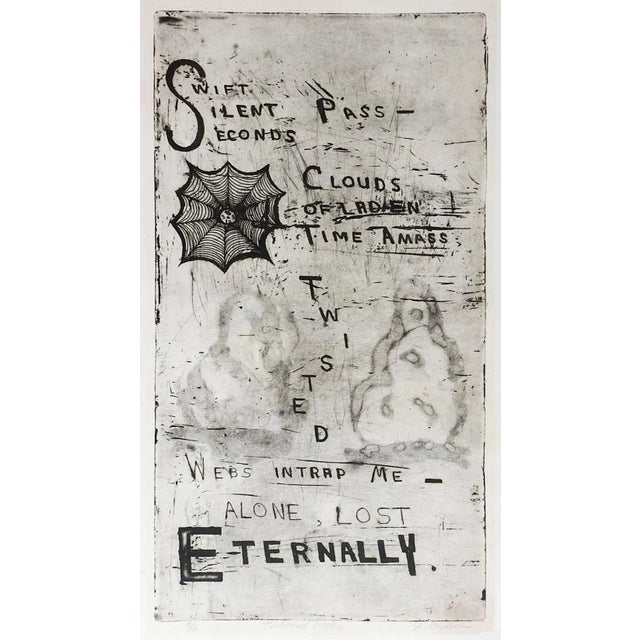 SWIFT
SILENT PASS—
SECONDS
CLOUDS
OF LADEN
TIME AMASS
TWISTED
WEBS INTRAP ME —
ALONE, LOST
ETERNALLY.